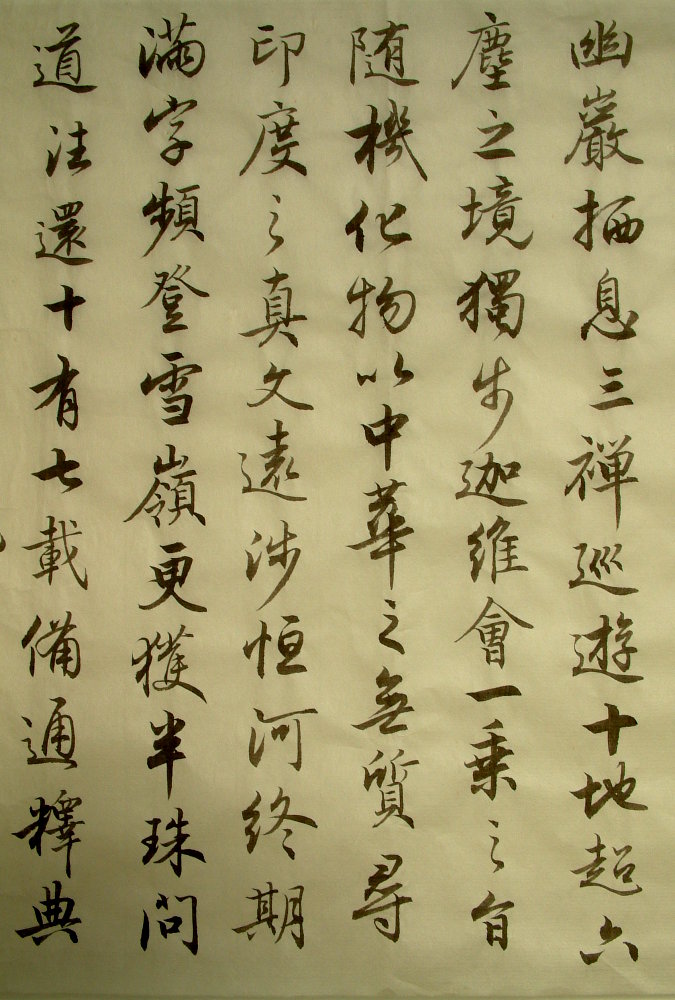 幽巖栖息三禪巡遊十地超六
塵之境獨步迦維會一乘之旨
随機化物以中華之無質尋
印度之真文遠涉恒河終期
滿字頻登雪嶺更獲半珠問
道法還十有七載備通釋典